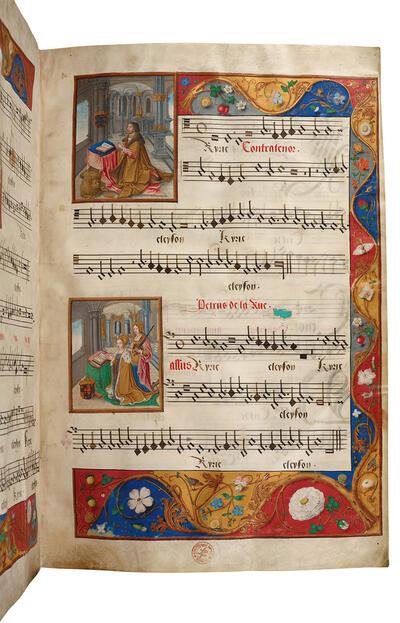 Kyrie Contratenor.
eleyson Kyrie
eleyson.
Petrus de la Rue.
assus Kyrie eleyson Kyrie
eleyson
Kyrie eleyson.